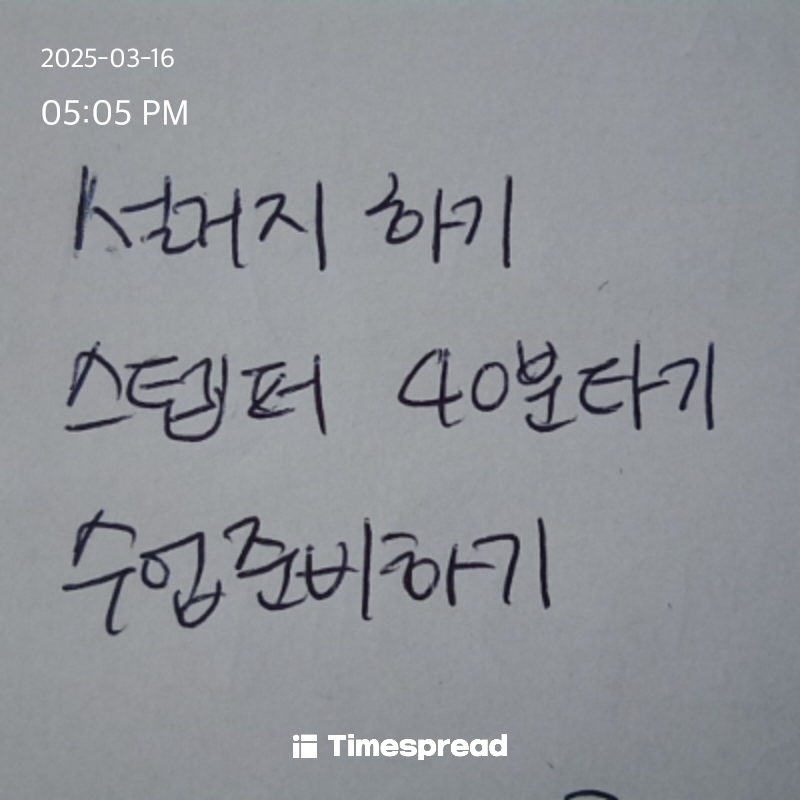 2025-03-16
05:05 PM
설거지 하기
스텝퍼 40분타기
수업준비하기
Timespread